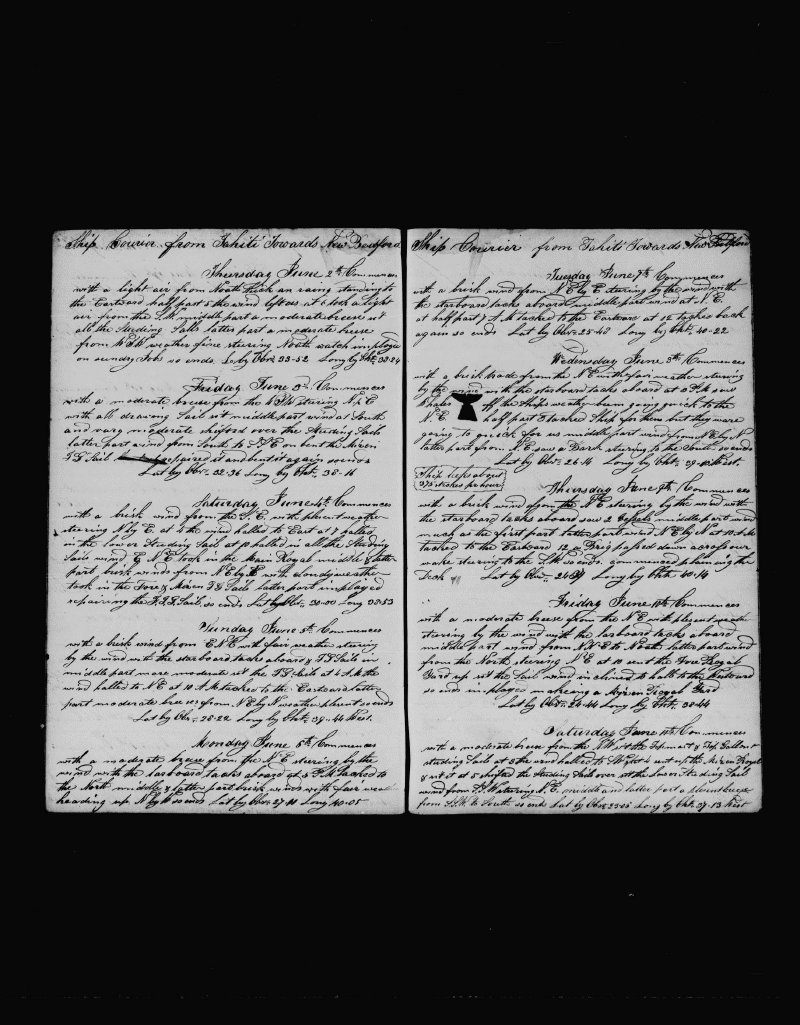 Ship Courier from Tahiti Towards New Bedford
Thursday June 2th Commences
with a light air from North thick an raing standing to
the Eastward half part 5 the wind left us at 6 took a light
air from the S.W. middle part a moderate breese set
all the Studing Sails latter part a moderate breese
from W.S.W weather fine stering North watch imployed
on sundry Jobs so ends Lat by Obr 33-52 Long by Cht. 38-24
Friday June 3th Commences
with a moderate breese from the N.W stering N.E
with all drawing Sail set middle part wind at South
and vary moderate shifted over the Studing Sails
latter part wind from South to S.S.E on bent the Mizen
T.G Sail repaired it and bent it again so ends
Lat by Obr. 32-36 Long by Cht. 38-16
Saturday June 4th Commences
with a brisk wind from the S.E. with plesent weather
stering N by E. at 4 the wind halled to East at 7 halled
in the lower Studing Sail at 10 halled in all the Studing
Sails wind E N.E took in the Main Royal middle & latter
part brisk winds from N.E by E with cloudy weather
took in the Fore & Mizen T.G Sails latter part imployed
repairing the F.T.G. Sail so ends Lat by Obr. 30-00 Long 38-53
Sunday June 5th Commences
with a brisk wind from E.N.E with fair weather stering
by the wind with the starboard tacks aboard T.G Sails in
middle part more moderate set the T.G Sails at 4 A.M the
wind halled to N.E at 10 A.M. tacked to the Eastward latter
part moderate breeses from N.E by N weather plesent so ends
Lat by Obr. 28-22 Long by Cht. 39-44 West.
Monday June 6th Commences
with a moderate breese from the N.E stering by the
wind with the larboard tacks aboard at 4 P.M tacked to
the North middle & latter part brisk winds with fair weat
heading up N by W so ends Lat by Obr 27-11 Long 40-05
Ship Courier from Tahiti Towards New Bedford
Tuesday June 7th Commences
with a brisk wind from N.E by E stering by the wind with
the starboard tacks aboard middle part wind at N.E.
at half part 7 A.M tacked to the Eastward at 12 tacked back
again so ends Lat by Obr. 25-48 Long by Cht. 40-22
Wednesday June 8th Commences
with a brisk trade from the N.E with fair weather stering
by the wind with the starboard tacks aboard at 2 P.M saw
Whales off the Ships weather beam going quick to the
N.E. half part 3 tacked Ship for them but they ware
going to quick for us middle part wind from N.E by N
latter part from N.E saw a Bark stering to the South so ends
Lat by Obr. 26-4 Long by Cht. 39-42 West.
Ship leeks about
375 stroks per hour
Thursday June 9th Commences
with a brisk wind from the N.E stering by the wind with
the starboard tacks aboard saw 2 Vessels middle part wind
much as the first part latter part wind N.E by N at 10 A.M
tacked to the Eastward 12 a Brig passed down across our
wake stering to the S.W. so ends. commenced plaining the
Deck Lat by Obr. Long by Cht. 40-14
Friday June 10th Commences
with a moderate breese from the N.E with plesent weather
stering by the wind with the larboard tacks aboard
middle part wind from N.N.E to North latter part wind
from the North stering N.E at 10 sent the Fore Royal
Yard up set the Sail wind in clined to hall to the Westward
so ends imployed in makeing a Mizen Royal Yard
Lat by Obr. 24-44 Long by Cht. 38-44
Saturday June 11th Commences
with a moderate breese from the N.W set the Topmast & Top Gallant
studing Sails at 3 the wind halled to at 4 sent up the Mizen Royal
& set it at 5 shifted the Studing Sails over set the Lower Studing Sail
wind from S.S.W stering N.E. middle and latter part a plesent breese
from S.S.W. to South so ends Lat by Obr. Long by Cht. 37-13 West